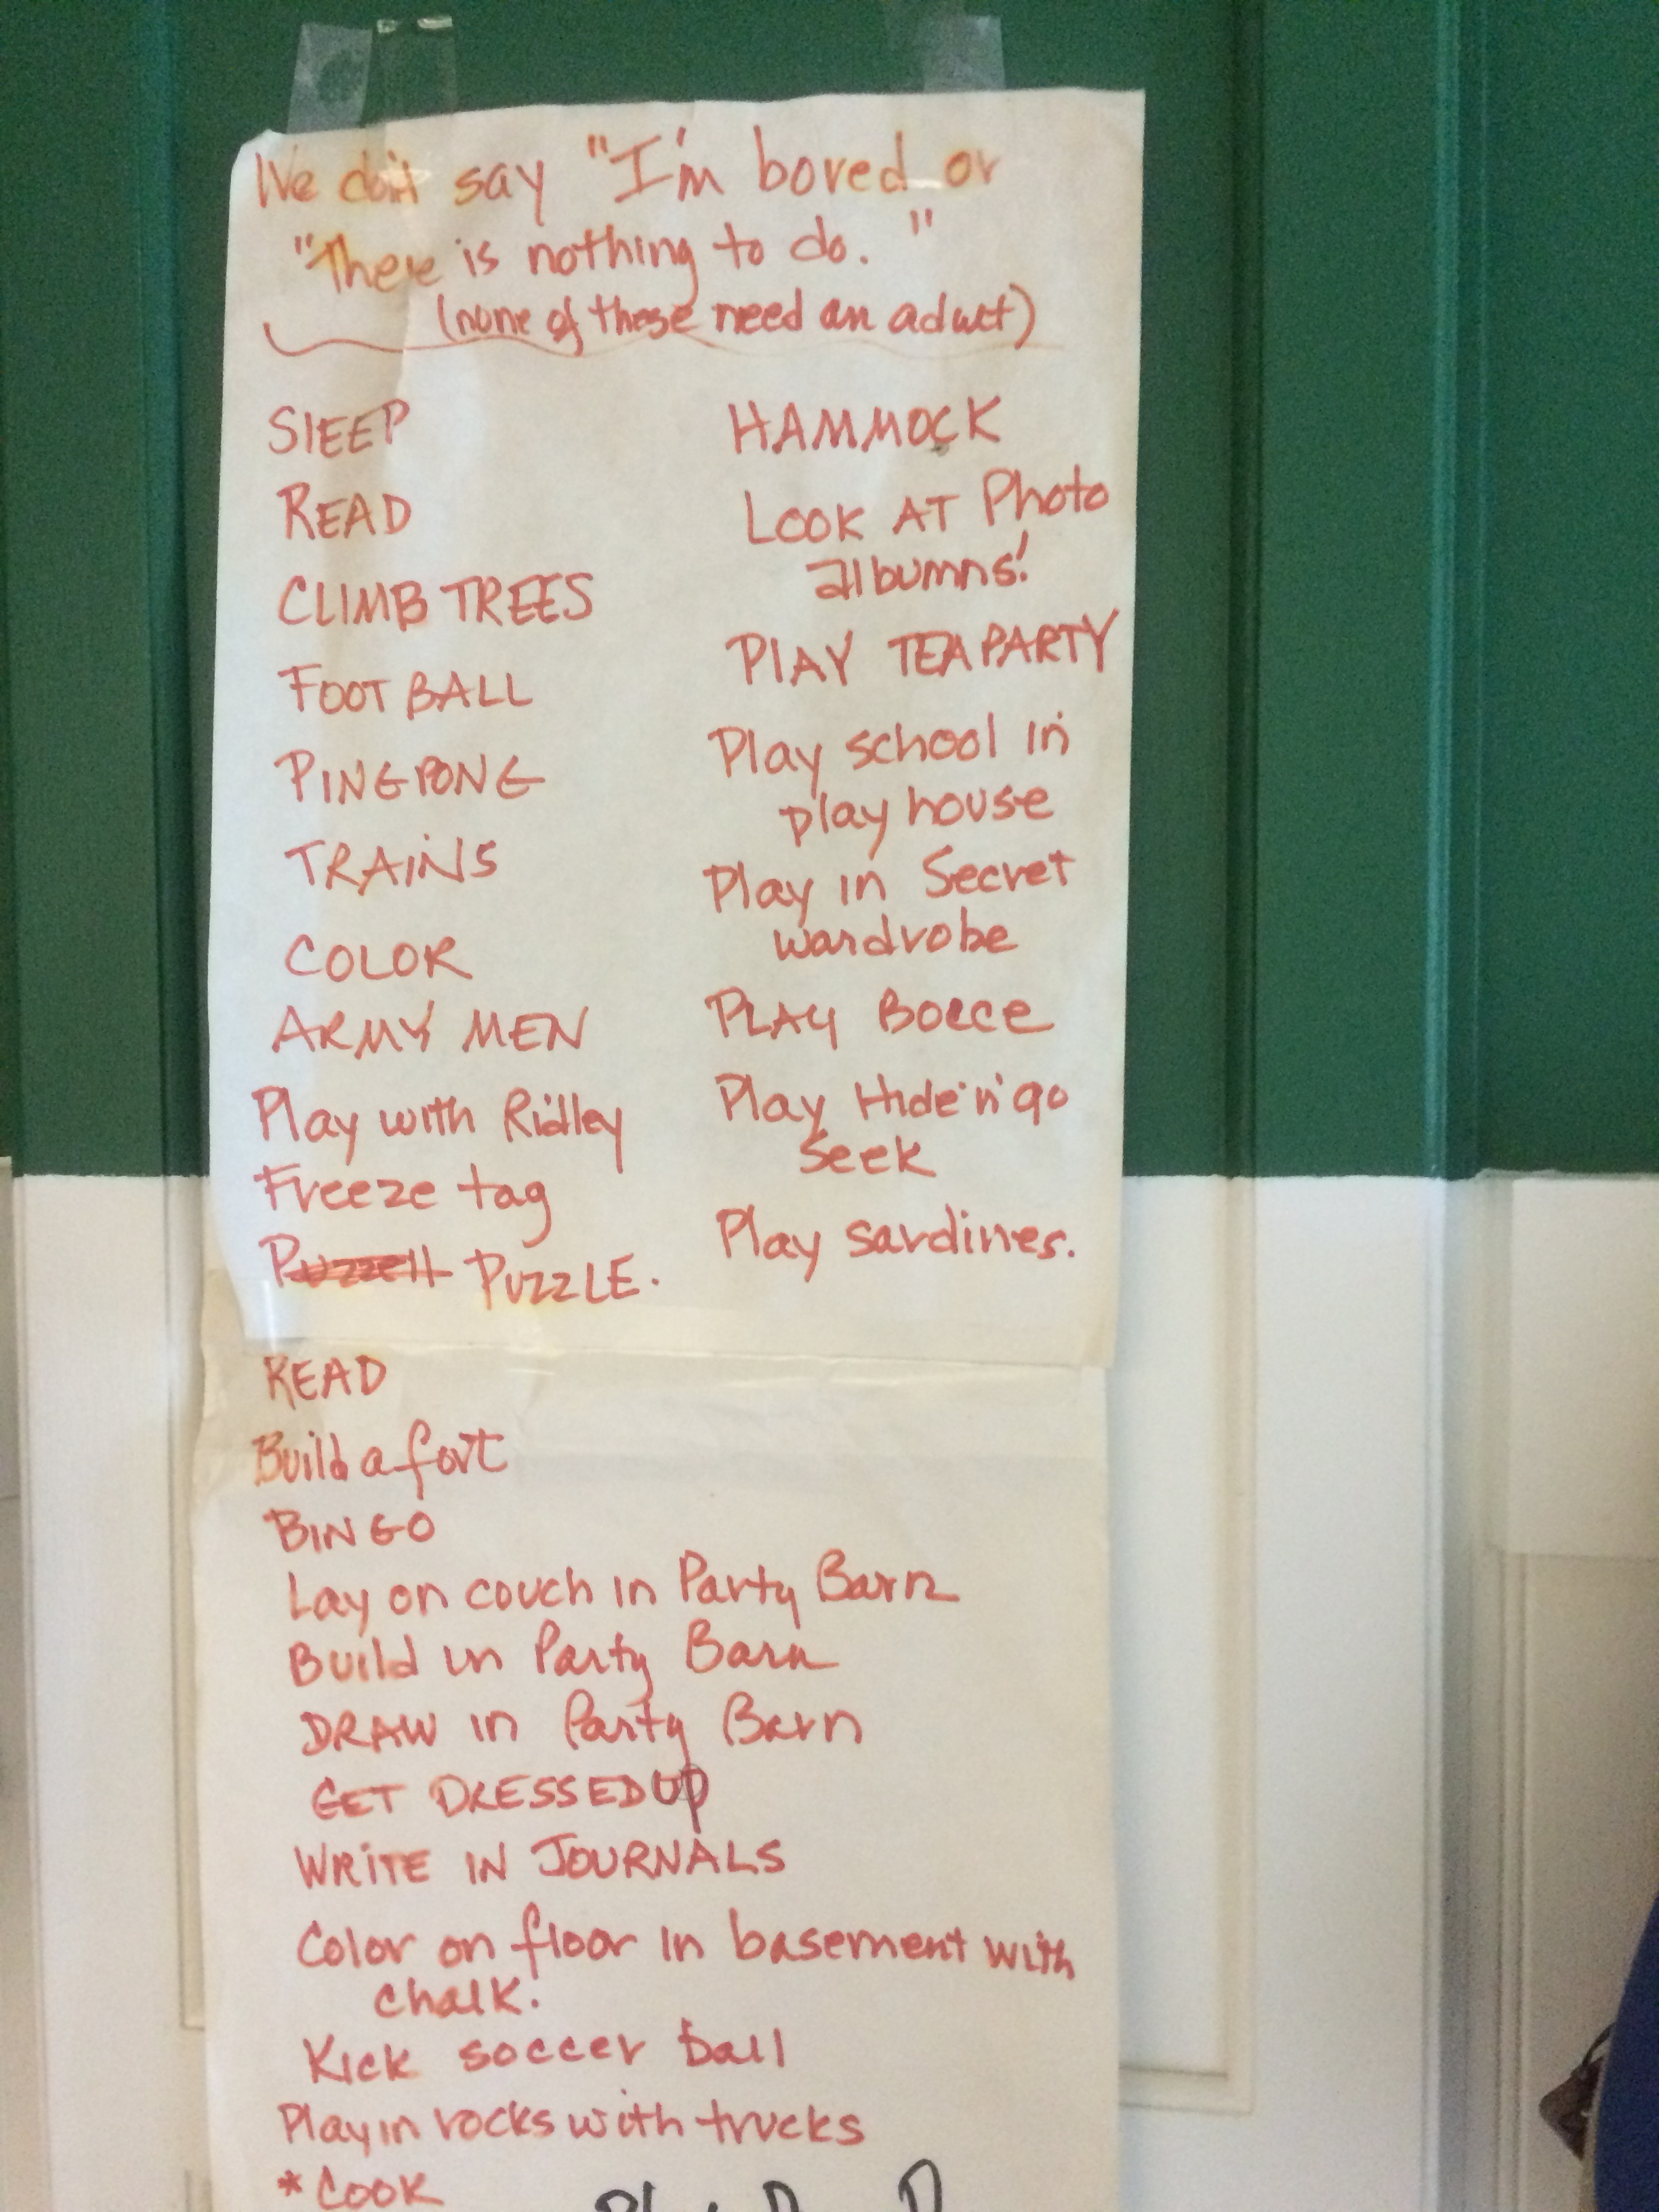 We don't say "I'm bored or
"There is nothing to do."
(none of these need an adult)
SlEEP
READ
CLIMB TREES
FOOT BALL
PINGPONG
TRAiNS
COLOR
ARMY MEN
Play with Ridley
Freeze tag
Puzzell PUZZLE.
HAMMOCK
LOOK AT Photo
albumns!
PlAY TEA PARTY
Play school in
play house
Play in Secret
wardrobe
PLAY Bocce
Play Hide'n'go
Seek
Play sardines.
READ
Build a fort
BINGO
Lay on couch in Party Barn
Build in Party Barn
DRAW in Party Barn
GET DRESSED Up
WRiTE IN JOURNALS
Color on floor in basement with
chalk.
Kick soccer ball
Play in rocks with trucks
*COOK